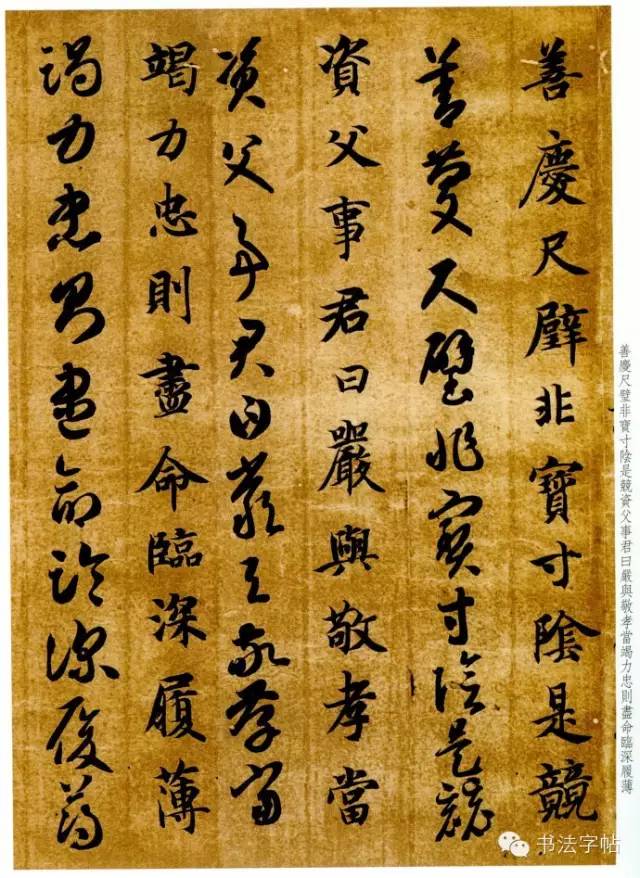 善慶尺璧非寶寸陰是競
善慶尺璧非寶寸陰是競
資父事君曰嚴與敬孝當
資父事君曰嚴與敬孝當
竭力忠則盡命臨深履薄
竭力忠則盡命臨深履薄
善慶尺璧非寶寸陰是競資父事君曰嚴與敬孝當竭力忠則盡命臨深履薄
书法字帖